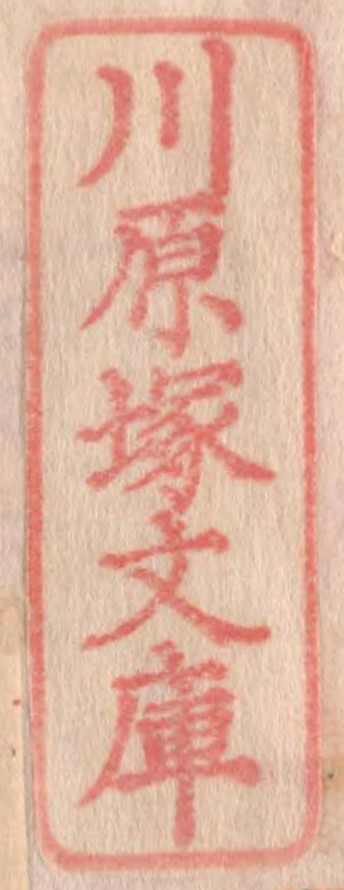 川原塚文庫